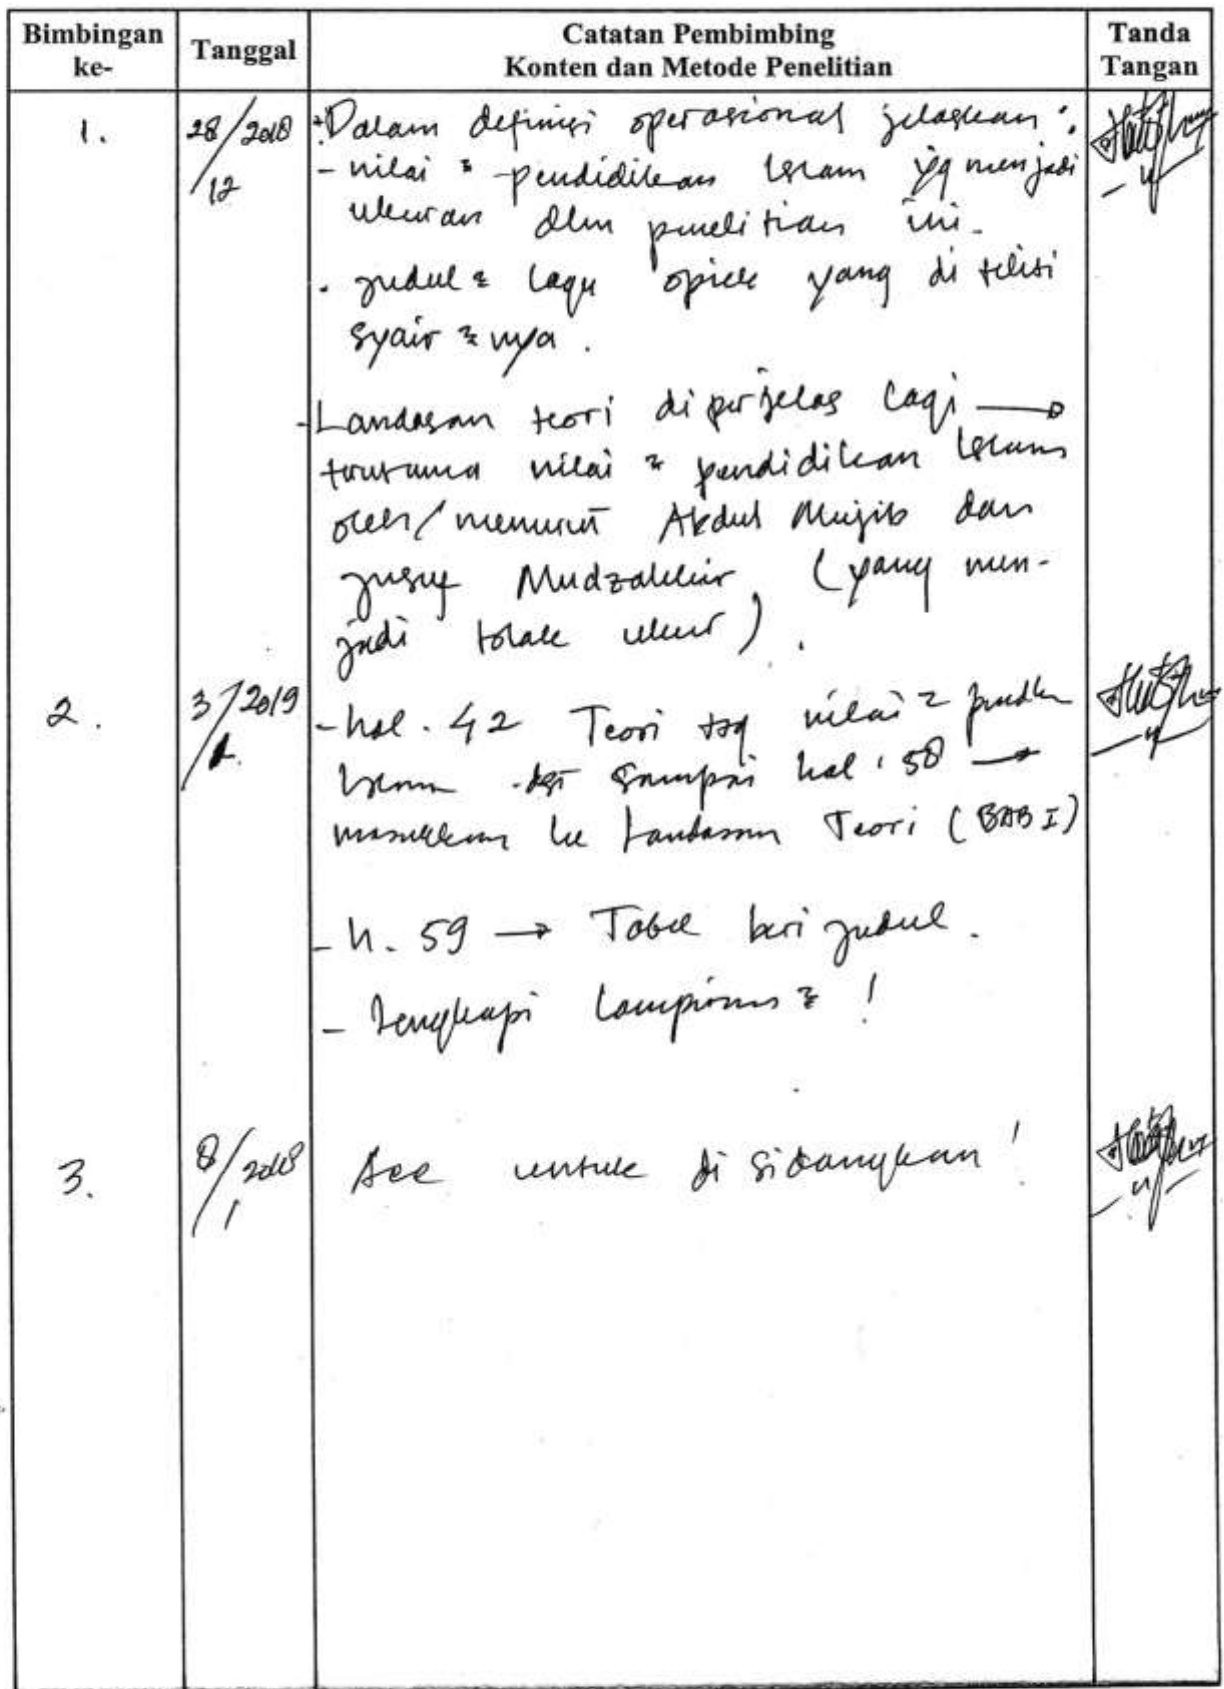 Bimbingan ke-
Tanggal
Catatan Pembimbing
Konten dan Metode Penelitian
Tanda Tangan
1.
28/12 2018
- Dalam definisi operasional jelaskan :
- nilai 2 pendidikan Islam yg menjadi
ukuran dlm penelitian ini.
. judul 2 lagu opick yang di teliti
syair 2 nya .
- Landasan teori di perjelas lagi →
terutama nilai 2 pendidikan Islam
oleh/menurut Abdul Mujib dan
Jusuf Mudzakkir (yang men-
jadi tolak ukur) .
2.
3/1 2019
- hal. 42 Teori ttg nilai 2 pendkn
Islam sampai hal. 58 →
masukkan ke Landasan Teori (BAB I)
- h. 59 → Tabel beri judul .
- Lengkapi lampiran 2 !
3.
8/1 2018
Acc untuk di sidangkan !